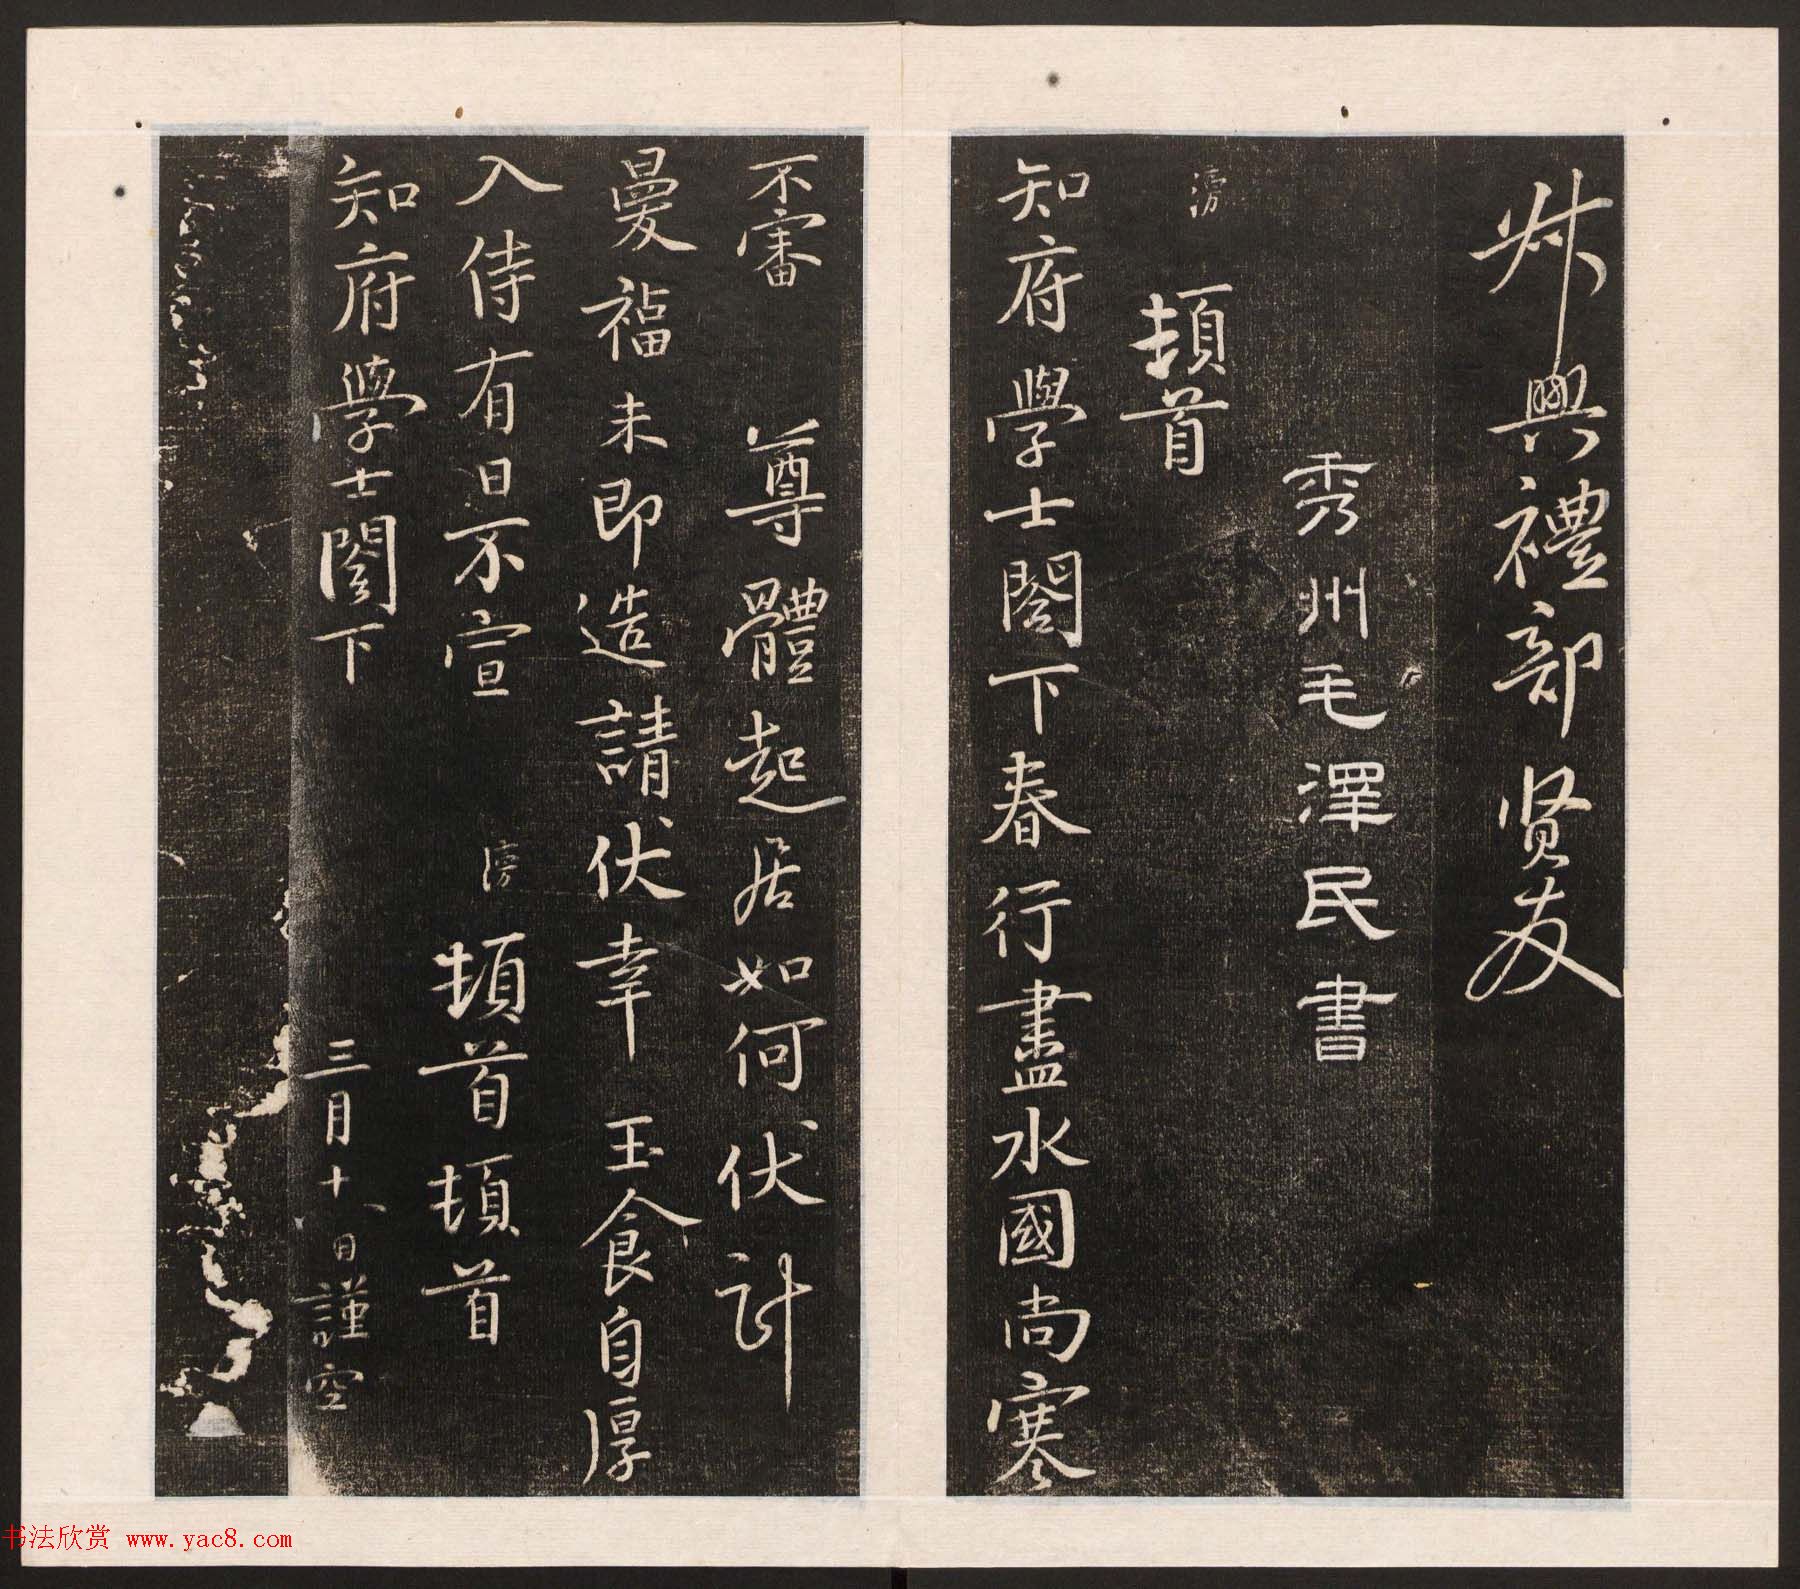 叔興禮部賢友
秀州毛澤民書
滂
頓首
知府學士閤下春行盡水國尚寒
不審 尊體起居如何伏計
曼福未即造請伏幸 玉食自厚
入侍有日不宣 滂 頓首頓首
知府學士閤下 三月十八日謹空
书法欣赏 www.yac8.com